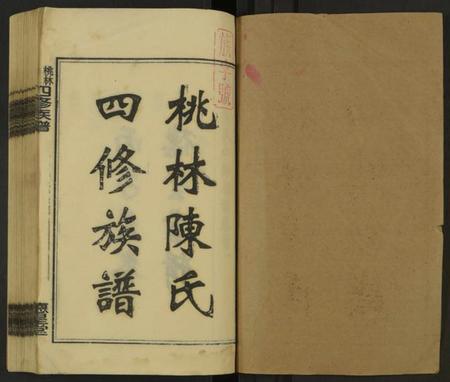 桃林陳氏
四修族譜
桃林四修族譜